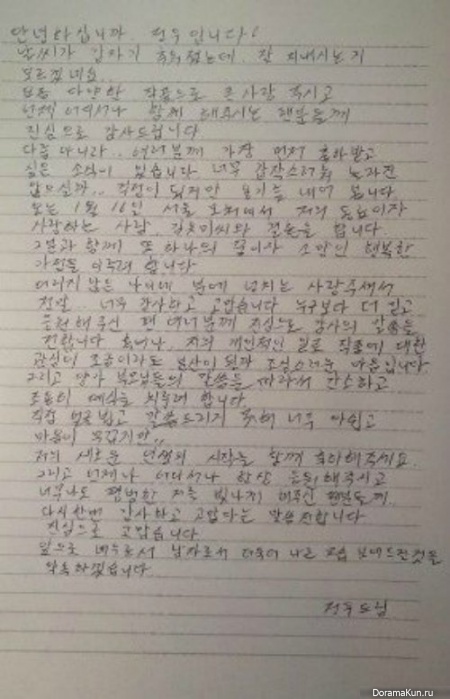 안녕하십니까. 정우입니다!
날씨가 갑자기 추워졌는데. 잘 지내시는지
모르겠네요.
보통 다양한 작품으로 큰 사랑 주시고
언제 어디서나 함께 해주시는 팬분들께
진심으로 감사드립니다
다름 아니라.. 여러분께 가장 먼저 축하받고
싶은 소식이 있습니다 너무 갑작스러워 놀라진
않으실까.. 걱정이 되지만 용기를 내어 봅니다
오는 1월 16일 서울 모처에서 저의 동반이자
사랑하는 사람. 김유미씨와 결혼을 합니다
그분과 함께 또 하나의 꿈이자 소망인 행복한
가정을 이루려 합니다
어리지 않은 나이에 분에 넘치는 사랑주셔서
정말.. 너무 감사하고 고맙습니다 누구보다 더 믿고
응원해주신 팬 여러분께 진심으로 감사의 말씀을
전합니다 혹여나. 저의 개인적인 일로 작품에 대한
관심이 조금이라도 분산이 될까 조심스러운 마음입니다
그리고 양가 부모님들의 말씀을 따라서 간소하고
조용히 예식을 치루려 합니다
직접 얼굴뵙고 말씀드리지 못해 너무 아쉽고
마음이 무겁지만..
저의 새로운 인생의 시작을 함께 축하해주세요.
그리고 언제나 어디서나 항상 응원해주시고
너무나도 평범한 저를 빛나게 해주신 팬분들께
다시한번 감사하고 고맙다는 말씀전합니다
진심으로 고맙습니다
앞으로 배우로서 남자로서 더욱더 나은 모습 보여드릴것을
약속하겠습니다
정우드림
DoramaKun.ru